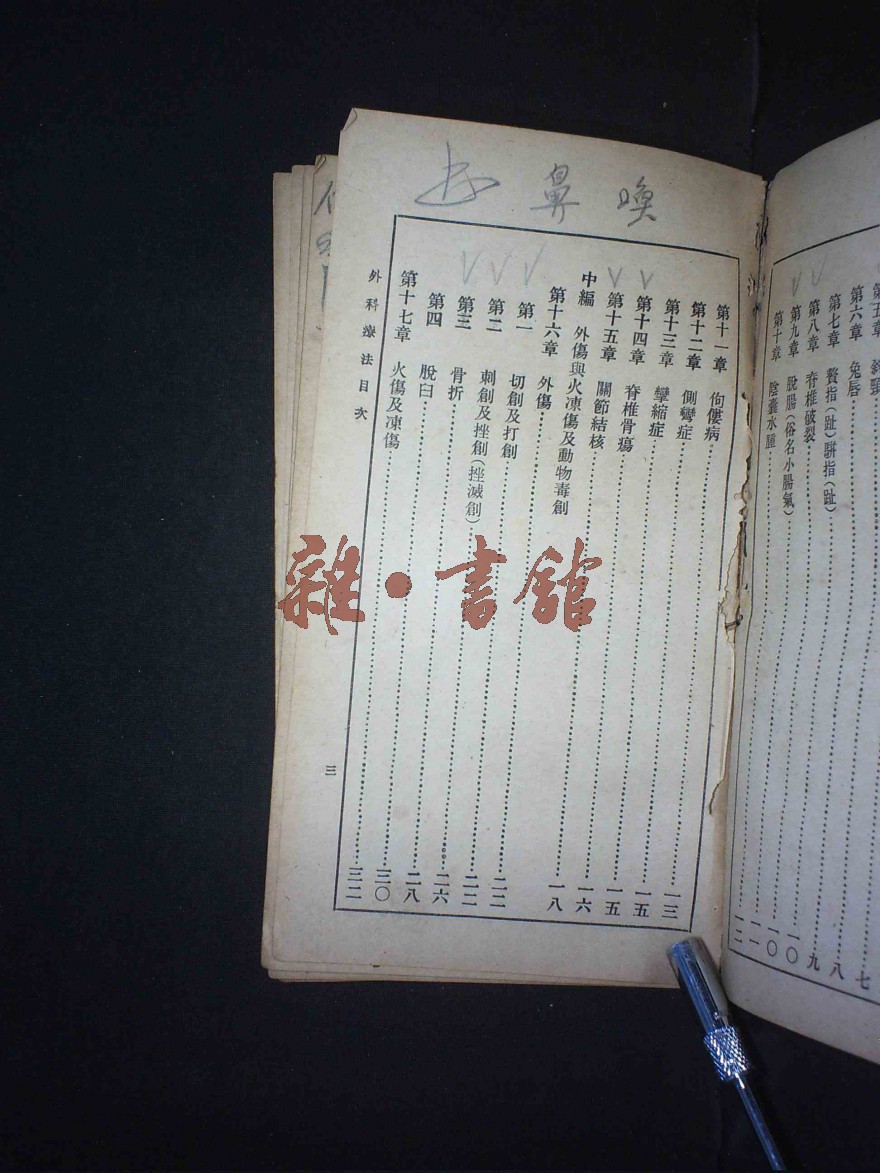 鼻 喚
第五章
第六章 兔唇……九
第七章 贅指(趾)駢指(趾)……一〇
第八章 脊椎破裂……一〇
第九章 脫腸(俗名小腸氣)……一一
第十章 陰囊水腫……一二
第十一章 佝僂病……一三
第十二章 側彎症……一五
第十三章 攣縮症……一五
第十四章 脊椎骨瘍……一六
第十五章 關節結核……一八
中編 外傷與火凍傷及動物毒創
第十六章 外傷……二二
第一 切創及打創……二二
第二 刺創及挫創(挫滅創)……二六
第三 骨折……二八
第四 脫臼……三〇
第十七章 火傷及凍傷……三二
外科療法目次
三
雜·書館